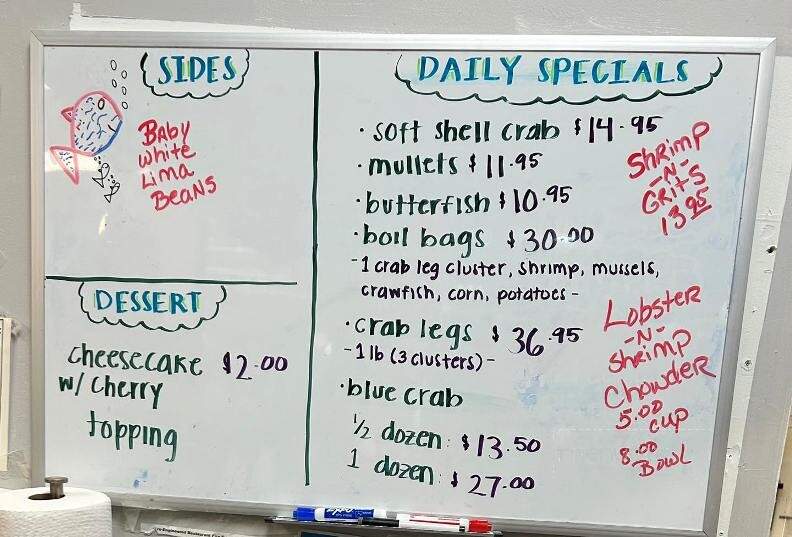 SIDES
BABY
WHITE
LIMA
BEANS
DESSERT
cheesecake $2.00
w/ cherry
topping
DAILY SPECIALS
· soft shell crab $14.95
· mullets $11.95
· butterfish $10.95
· boil bags $30.00
- 1 crab leg cluster, shrimp, mussels,
crawfish, corn, potatoes -
· crab legs $36.95
- 1 lb (3 clusters) -
· blue crab
1/2 dozen: $13.50
1 dozen: $27.00
SHRIMP
-N-
GRITS
13.95
Lobster
-N-
Shrimp
Chowder
5.00
cup
8.00
BOWL
EXPO